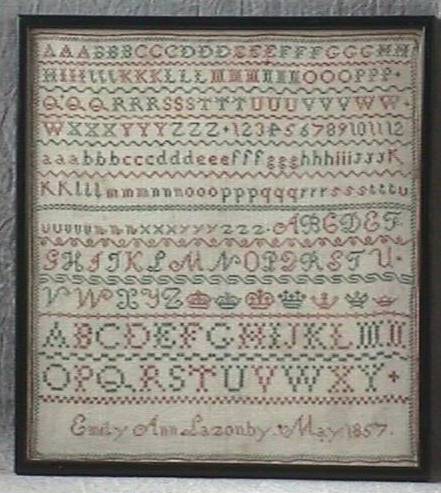 AAABBBCCCDDDEEEFFFGGGHH
HIIIIIKKKLLLMMMNNNOOOPPP
QQQRRRSSSTTTUUUVVVWW
WXXXYYYZZZ 123456789101112
aaabbbcccdddeeefffggghhhiiijjjK
KKlllmmmnnnooopppqqqrrrsssttttu
xxxyyyzzz ABCDEF
GHIJKLMNOPQRSTU
VWXYZ
ABCDEFGHIJKLMN
OPQRSTUVWXY
Emily Ann Lazonby. May. 1857.